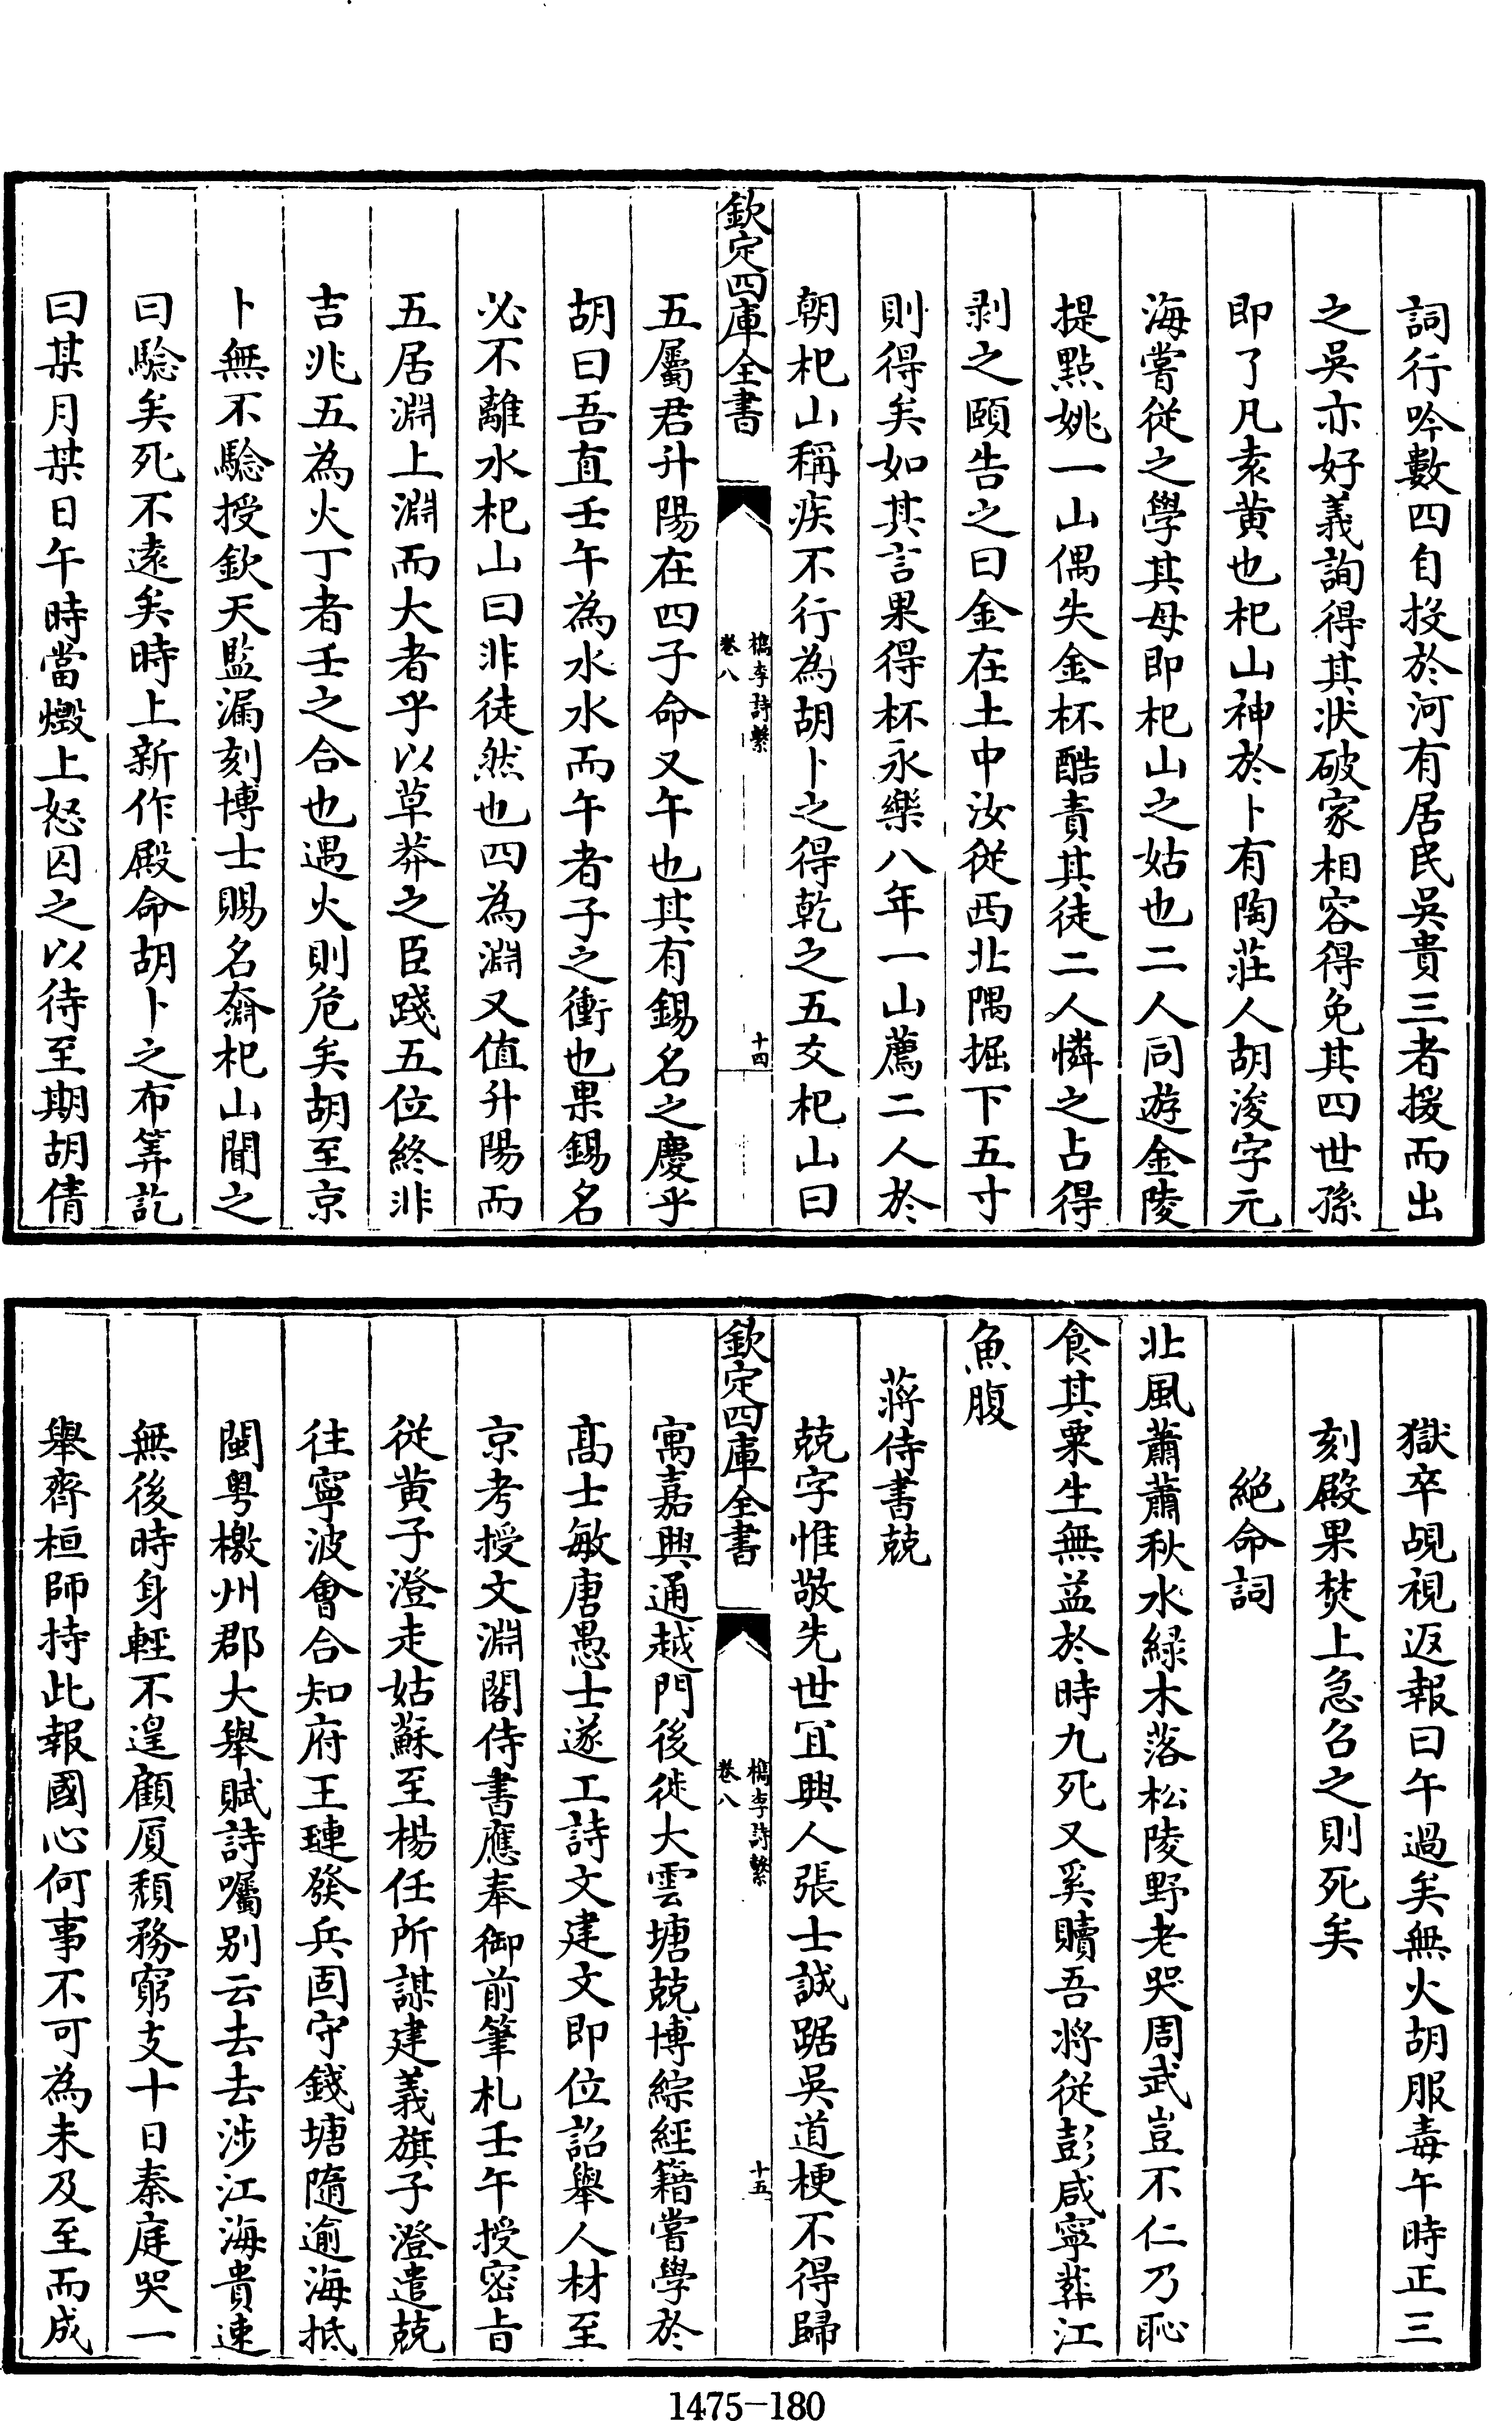 詞行吟數四自投於河有居民吳貴三者援而出
之吳亦好義詢得其狀破家相容得免其四世孫
即了凡袁黄也杞山神於卜有陶莊人胡浚字元
海嘗從之學其母即杞山之姑也二人同遊金陵
提點姚一山偶失金杯酷責其徒二人憐之占得
剥之頤告之曰金在土中汝從西北隅掘下五寸
則得矣如其言果得杯永樂八年一山薦二人於
朝杞山稱疾不行為胡卜之得乾之五爻杞山曰
欽定四庫全書
檇李詩繫
卷八
十四
五屬君升陽在四子命又午也其有錫名之慶乎
胡曰吾直壬午為水水而午者子之衝也果錫名
必不離水杞山曰非徒然也四為淵又值升陽而
五居淵上淵而大者乎以草莽之臣踐五位終非
吉兆五為火丁者壬之合也遇火則危矣胡至京
卜無不驗授欽天監漏刻博士賜名奫杞山聞之
曰驗矣死不遠矣時上新作殿命胡卜之布筭訖
曰某月某日午時當燬上怒囚之以待至期胡倩
獄卒覘視返報曰午過矣無火胡服毒午時正三
刻殿果焚上急召之則死矣
絕命詞
北風蕭蕭秋水綠木落松陵野老哭周武豈不仁乃恥
食其粟生無益於時九死又奚贖吾將從彭咸寧葬江
魚腹
蔣侍書兢
兢字惟敬先世宜興人張士誠踞吳道梗不得歸
欽定四庫全書
檇李詩繫
卷八
十五
寓嘉興通越門後徙大雲塘兢博綜經籍嘗學於
高士敏唐愚士遂工詩文建文即位詔舉人材至
京考授文淵閣侍書應奉御前筆札壬午授密旨
從黄子澄走姑蘇至楊任所謀建義旗子澄遣兢
往寧波會合知府王璉發兵固守錢塘隨逾海抵
閩粵檄州郡大舉賦詩囑别云去去涉江海貴速
無後時身輕不遑顧厦頹務窮支十日秦庭哭一
舉齊桓師持此報國心何事不可為未及至而成
1475-180